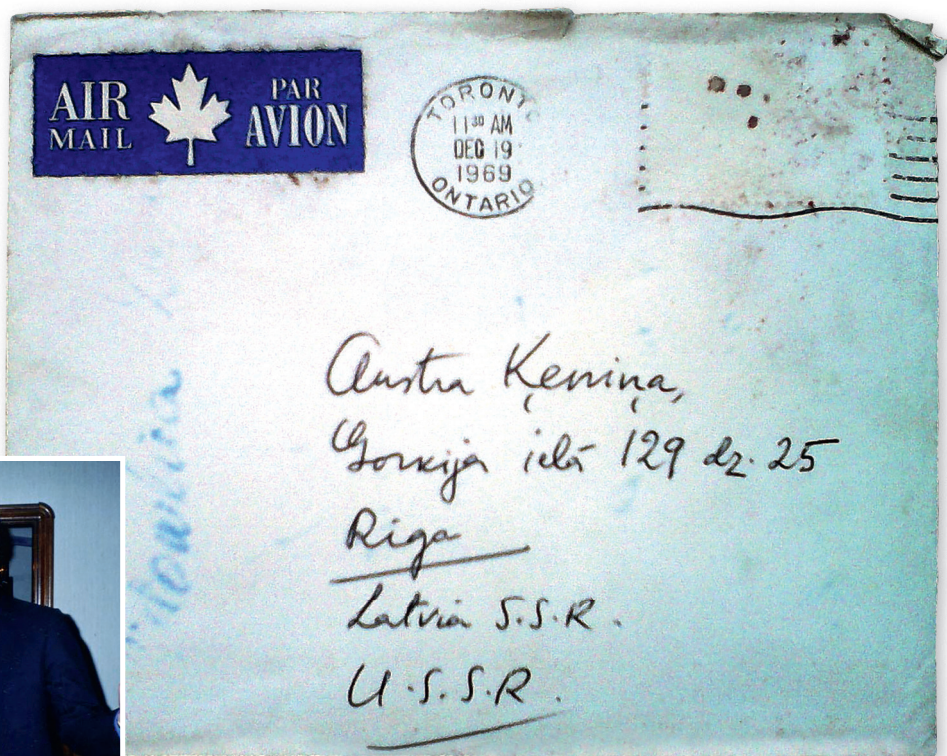 AIR PAR
MAIL AVION
TORONTO
11³⁰ AM
DEC 19
1969
ONTARIO
Austra Ķeniņa,
Gorkija ielā 129 dz. 25
Riga
Latvia S.S.R.
U.S.S.R.